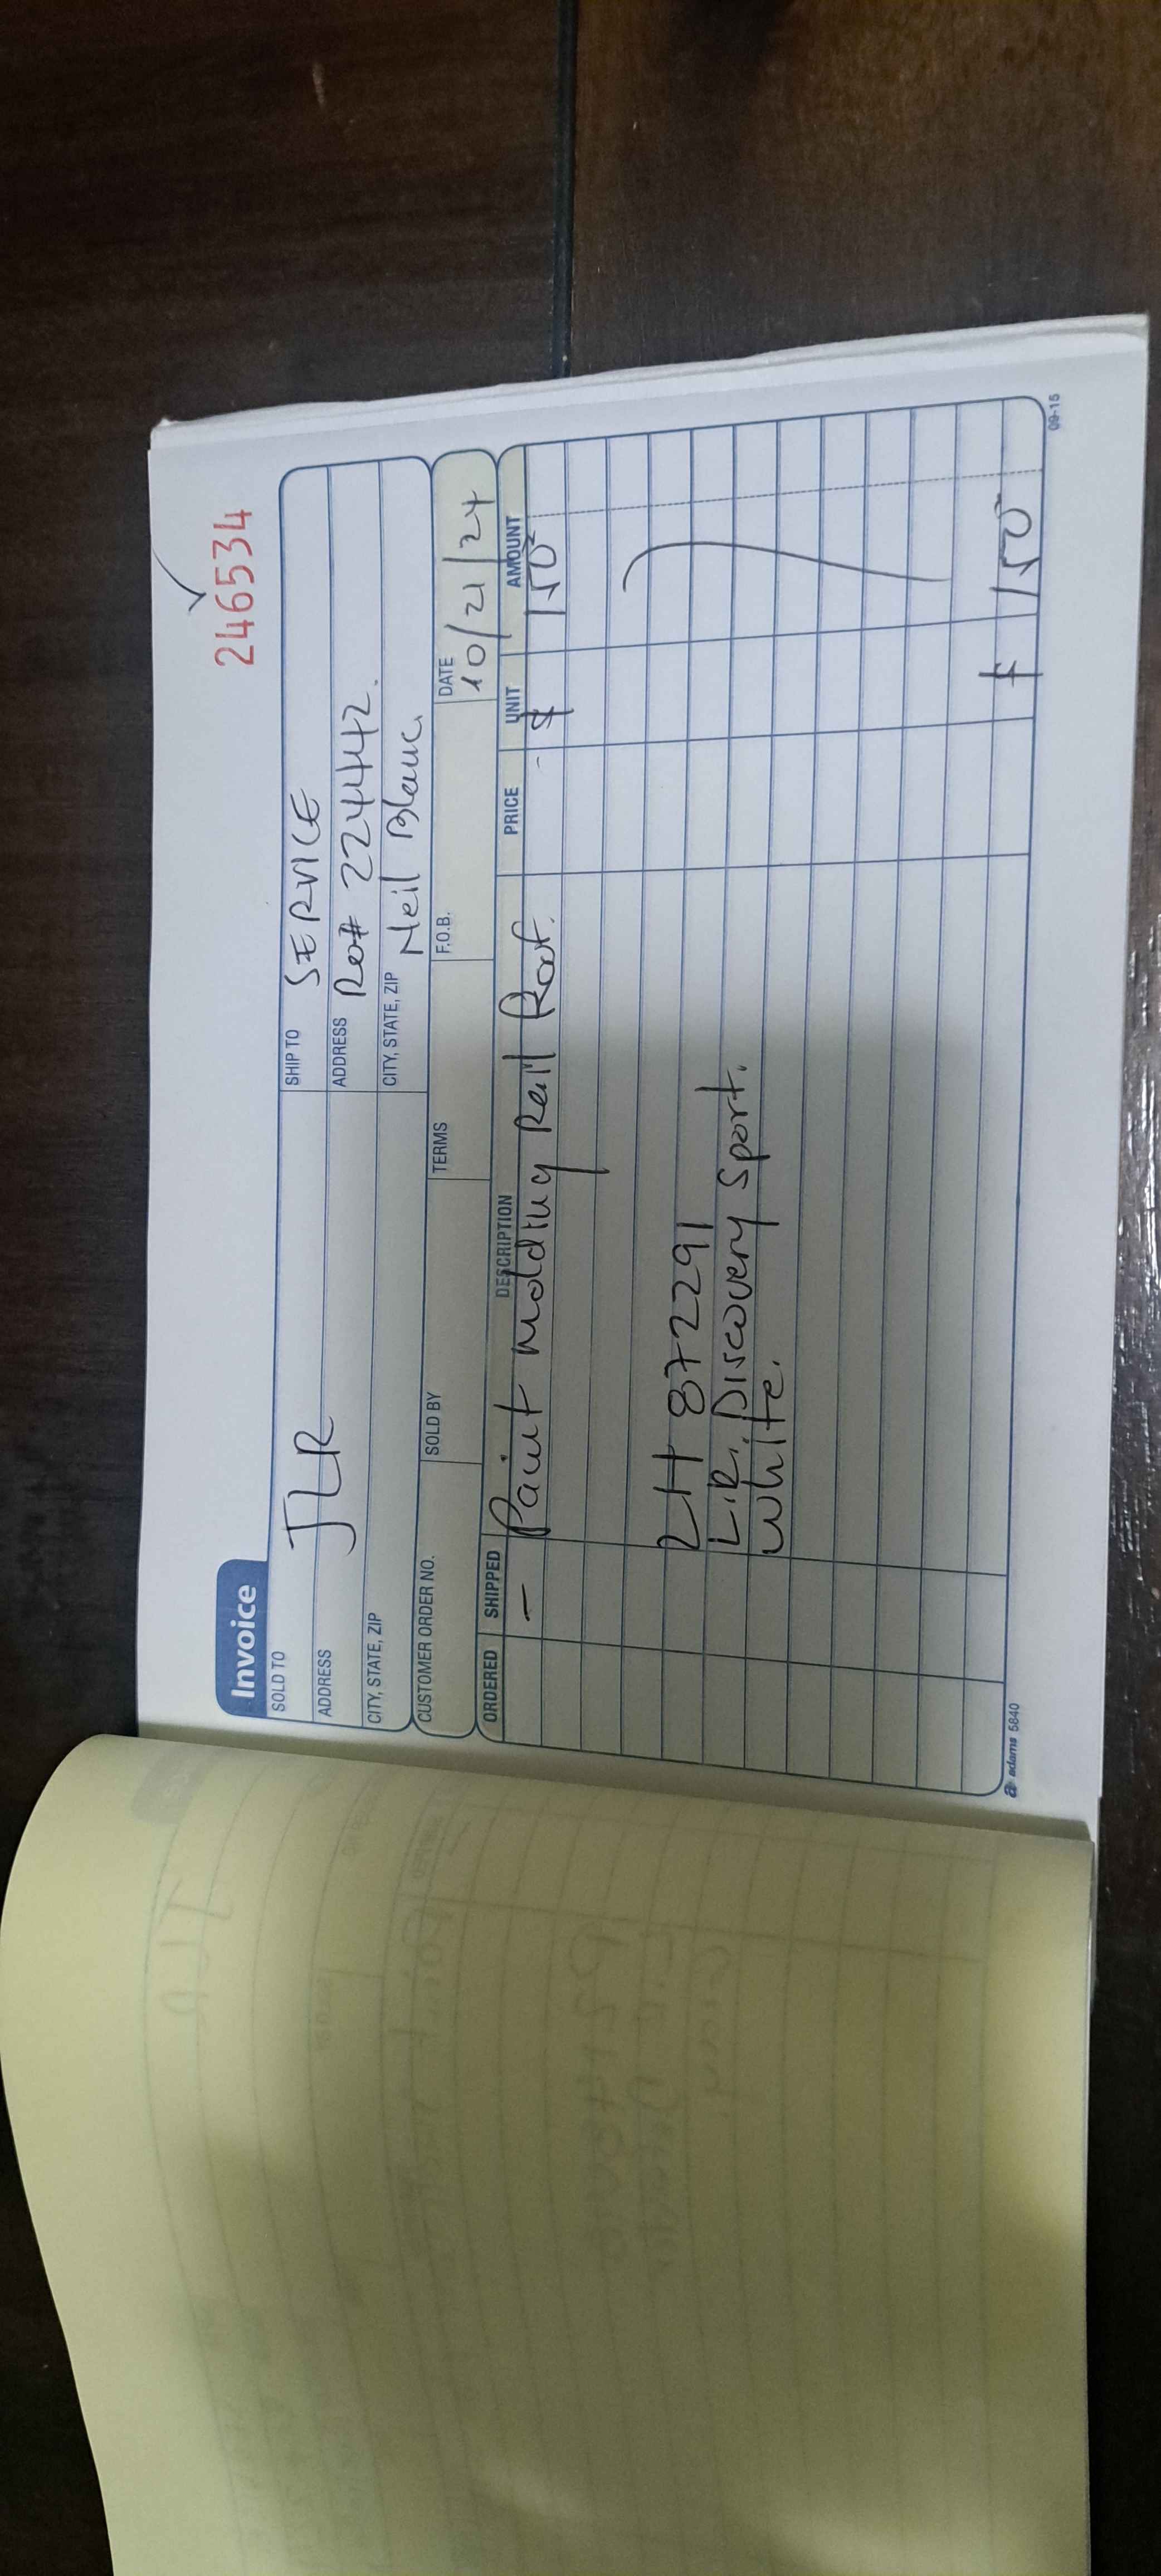 246534
Invoice
SOLD TO JLR
ADDRESS
CITY, STATE, ZIP
SHIP TO SERVICE
ADDRESS Ro# 224442.
CITY, STATE, ZIP Neil Blanc
CUSTOMER ORDER NO. SOLD BY TERMS F.O.B. DATE 10/21/24
ORDERED SHIPPED DESCRIPTION PRICE UNIT AMOUNT
- Paint molding Rail Roof. $ 150
LH 872291
L.R. Discovery Sport.
white.
$ 150
adams 5840 09-15